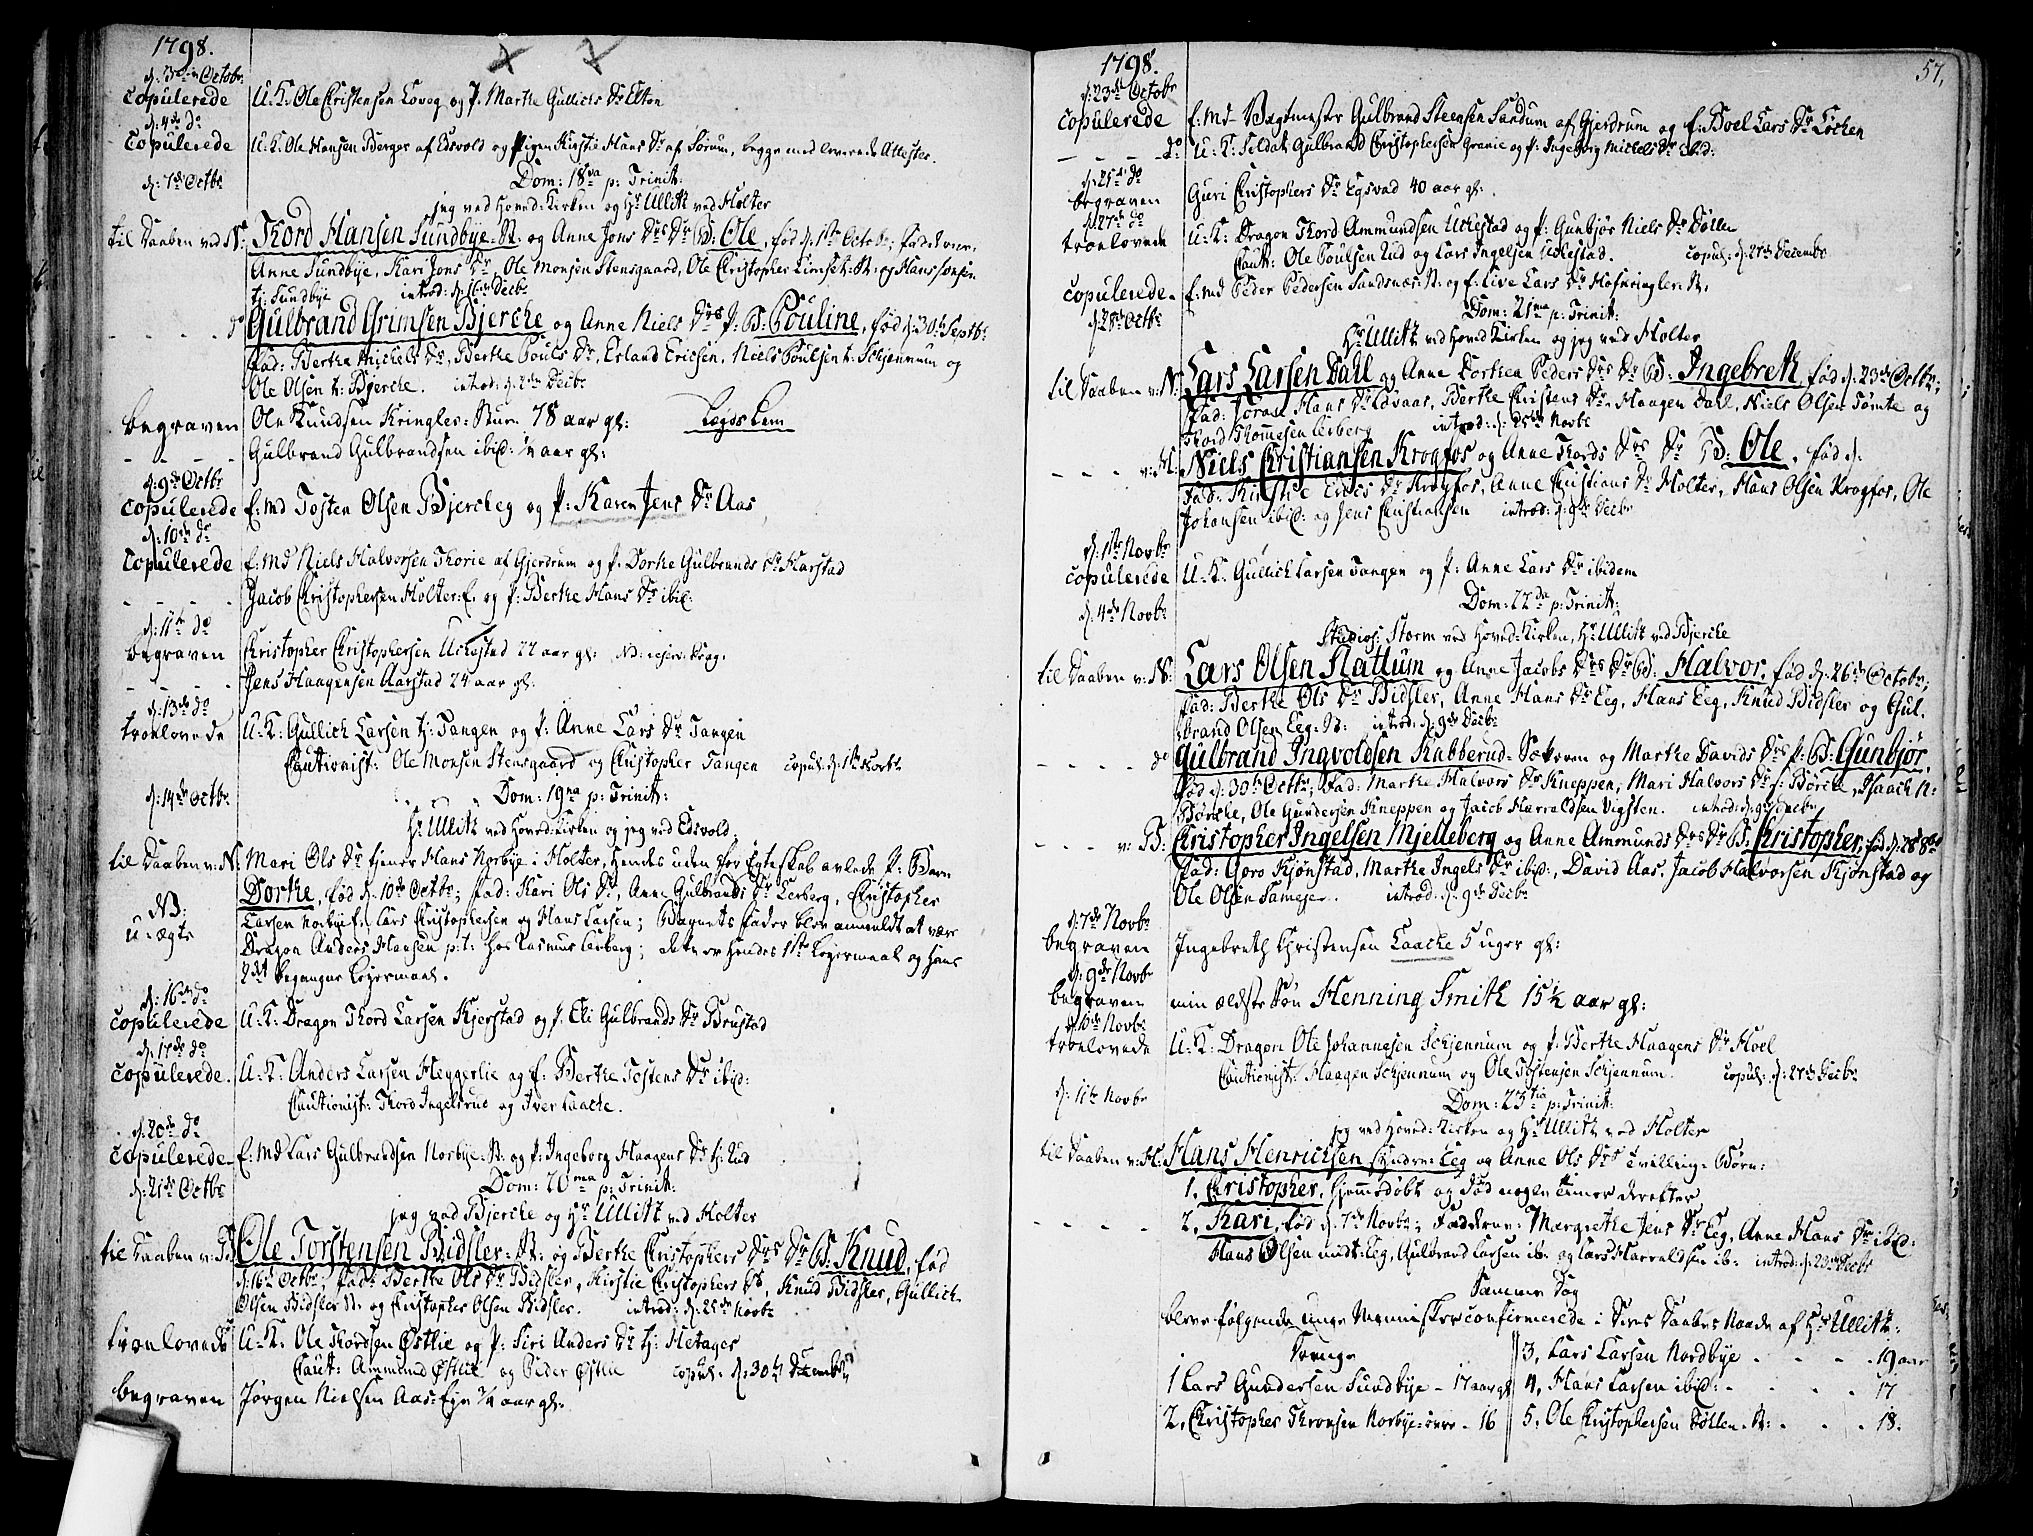 1798.
d: 3die Octobr:
copulerede U:K: Ole Christensen Loveg og P: Marthe Gullichs Dr Elton
d: 4de do
copulerede U:K: Ole Hansen Berger af Edsvold og Pigen Kirstie Hans Dr af Sørum, begge med leverede Attester.
d: 7de Octbr
Dom: 18va p: Trinit:
jeg ved Hoved-Kirken og Hr Ullitz ved Holter
til Daaben ved N: Thord Hansen Sundbye: N: og Anne Jons Drs Dr B: Ole, fød d: 1ste Octobr; Fadderne:
Anne Sundbye, Kari Jons Dr, Ole Monsen Stensgaard, Ole Christopher Limset: N: og Hans Hansen
tj: Sundbye introd: d: 16de Decbr
do Gulbrand Grimsen Bjercke og Anne Niels Drs P: B: Pouline, fød d: 30te Septbr:
fad: Berthe Michels Dr, Berthe Pouls Dr, Erland Ericsen, Niels Poulsen t: Schjennum og
Ole Olsen t: Bjercke. introd: d: 2den Decbr
begraven Ole Knudsen Kringler: Stum 78 aar gl: Legds Lem
Gulbrand Gulbrandsen ibid: 1/4 aar gl:
d: 9de Octbr
copulerede E:Md Tosten Olsen Bjerkeg og P: Karen Jens Dr Aas
d: 10de do
copulerede E:Md Niels Halvorsen Thorie af Gjerdrum og P: Dorthe Gulbrands Dr Harstad
Jacob Christophersen Holter: E: og P: Berthe Hans Dr ibid:
d: 11te do
begraven Christopher Christophersen Uckestad 22 aar gl:
Jens Haagensen Aarstad 24 aar gl:
d: 13de do
troelovede U:K: Gullich Larsen tj: Tangen og P: Anne Lars Dr Tangen
Cautionist: Ole Monsen Stensgaard og Christopher Tangen copul: d: 1ste Novbr
d: 14de Octbr
Dom: 19na p: Trinit:
Hr Ullitz ved Hoved-Kirken og jeg ved Edsvold.
til Daaben v: N: Mari Ols Dr tjener Hans Norbye i Holter, hendes uden for Egteskab avlede P: Barn
Dorthe, fød d: 10de Octbr; fad: Kari Ols Dr, Anne Gulbrands Dr Lerberg, Christopher
NB: Larsen Norbye, Lars Christophersen og Hans Larsen; Barnets Fader blev anmeldt at være
u-ægte Dragon Anders Hansen p:t: hos Rasmus Lerberg; dette er hendes 1ste Leyermaal og hans
2det begangne Leyermaal.
d: 16de do
copulerede U:K: Dragon Thord Larsen Kjerstad og P: Eli Gulbrands Dr Brustad
d: 17de do
copulerede. U:K: Anders Larsen Heggerlie og E: Berthe Tostens Dr ibid:
Cautionist: Thord Ingelsrud og Iver Laache.
d: 20de do
copulerede. E:Md Lars Gulbrandsen Norbye: N: og P: Ingeborg Haagens Dr tj: Rud
d: 21de Octbr
Dom: 20ma p: Trinit:
jeg ved Bjercke og Hr Ullitz ved Holter
til Daaben v: B: Ole Torstensen Bidsler: N: og Berthe Christophers Drs Dr B: Knud, fød
d: 16de Octbr; fad: Berthe Ols Dr Bidsler, Kirstie Christophers Dr, Knud Bidsler, Gullich
Olsen Bidsler N: og Christopher Olsen Bidsler. introd: d: 25de Novbr
troelovede U:K: Ole Thordsen Østlie og P: Siri Anders Dr tj: Hetager
Caut: Ammund Østlie og Peder Østlie copul: d: 30te Decembr
begraven Jørgen Nielsen Aas: Eje 3/4 aar gl:
1798. 57.
d: 23de Octobr
copulerede E:Md Vagtmester Gulbrand Steensen Sandum af Gjerdrum og E: Boel Lars Dr Løchen
do U:K: Soldat Gulbrand Christophersen Granie og P: Ingeborg Michels Dr ibid:
d: 25de do
begraven Guri Christophers Dr Egsvad 40 aar gl:
d: 27de do
troelovede U:K: Dragon Thord Ammundsen Uckestad og P: Gunbjør Niels Dr Døllen
Caut: Ole Poulsen Rud og Lars Ingelsen Uckestad. copul: d: 27de Decembr
copulerede. E:Md Peder Pedersen Sandsnæs: N: og E: Live Lars Dr Hofkringler: N:
d: 28de Octbr
Dom: 21ma p: Trinit:
Hr Ullitz ved Hoved-Kirken og jeg ved Holter
til Daaben v: N: Lars Larsen Dahl og Anne Dorthea Peders Drs Dr B: Ingebreth, fød d: 23de Octbr;
fad: Joran Hans Dr Edvaas, Berthe Christens Dr, Haagen Dahl, Niels Olsen Tomte og
Thord Thommesen Lerberg introd: d: 25de Novbr
v: H: Niels Christiansen Krogfos og Anne Thords Drs Dr B: Ole, fød d:
fad: Kirstie Erics Dr Krogfos, Anne Christians Dr Holter, Hans Olsen Krogfos, Ole
Johansen ibid: og Jens Christiansen introd: d: 9de Decbr
d: 1ste Novbr
copulerede U:K: Gullich Larsen Tangen og P: Anne Lars Dr ibidem
d: 4de Novbr
Dom: 22da p: Trinit:
Studios: Storm ved Hoved-Kirken, Hr Ullitz ved Bjercke
til Daaben v: N: Lars Olsen Hattum og Anne Jacobs Drs Dr B: Halvor, fød d: 26de Octobr;
fad: Berthe Ols Dr Bidsler, Anne Hans Dr Eeg, Hans Eeg, Knud Bidsler og Gul-
brand Olsen Eeg: N: introd: d: 9de Decbr
do Gulbrand Ingvoldsen Rabberud-Sækven og Marthe Davids Drs P: B: Gunbjør,
fød d: 30te Octbr; fad: Marthe Halvors Dr Kneppen, Mari Halvors Dr t: Børche, Isaach N:
Børche, Ole Gundersen Kneppen og Jacob Harraldsen Vigsten. introd: d: 9de Decbr
v: B: Christopher Ingelsen Mjelleberg og Anne Ammunds Drs Dr B: Christopher, fød d: 28 8br
fad: Goro Kjønstad, Marthe Ingels Dr ibid:, David Aas, Jacob Halvorsen Kjønstad og
Ole Olsen Sameier. introd: d: 9de Decbr
d: 7de Novbr
begraven Ingebreth Christensen Laache 5 uger gl:
d: 9de Novbr
begraven min ældste Søn Henning Smith 15 1/2 aar gl:
d: 10de Novbr
troelovede U:K: Dragon Ole Johannesen Schjennum og P: Berthe Haagens Dr Hoel
Cautionist: Haagen Schjennum og Ole Tostensen Schjennum. copul: d: 27de Decbr
d: 11te Novbr
Dom: 23tia p: Trinit:
jeg ved Hoved-Kirken og Hr Ullitz ved Holter
til Daaben v: H: Hans Henricksen Søndre: Eeg og Anne Ols Drs Tvilling-Børn:
1, Christopher, hjemmedøbt og død nogen Timer derefter
2, Kari, fød d: 7de Novbr; Fadderne: Margrethe Jens Dr Eeg, Anne Hans Dr ibid:
Hans Olsen midt: Eeg, Gulbrand Larsen ib: og Lars Harraldsen ib: introd: d: 23de Decbr
Samme Dag
bleve følgende unge Mennisker confirmerede i Deres Daabes Naade af Hr Ullitz:
Drenge
1 Lars Gundersen Sundbye - 17 aar gl
2, Christopher Thronsen Norbye: øvre - 16
3, Lars Larsen Nordbye - - - 19 aar
4, Hans Larsen ibid: - - - 17
5, Ole Christophersen Døllen: N: - - - 18.